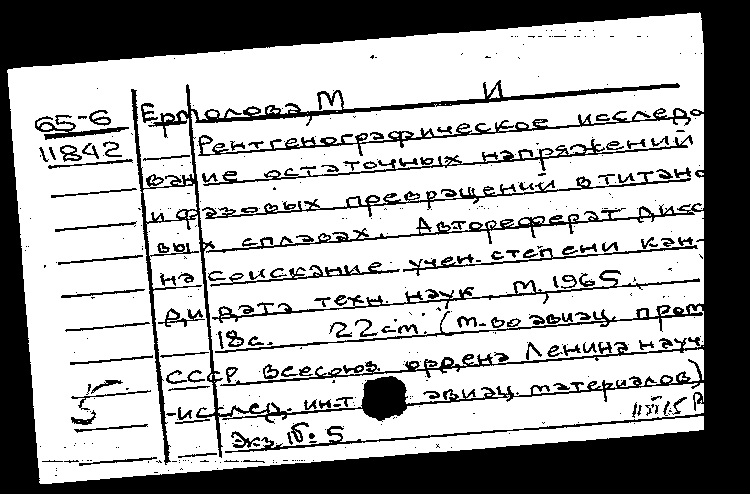 65-6 Ермолова, М И
11842 Рентгенографическое исследо
вание остаточных напряжений
и фазовых превращений в титано
вых сплавах. Автореферат дисс
на соискание учен. степени кан-
дидата техн. наук. М., 1965.
18с. 22см. (М-во авиац. пром
СССР. Всесоюз. ордена Ленина науч
5 -исслед. ин-т авиац. материалов)
Экз. №: 5.